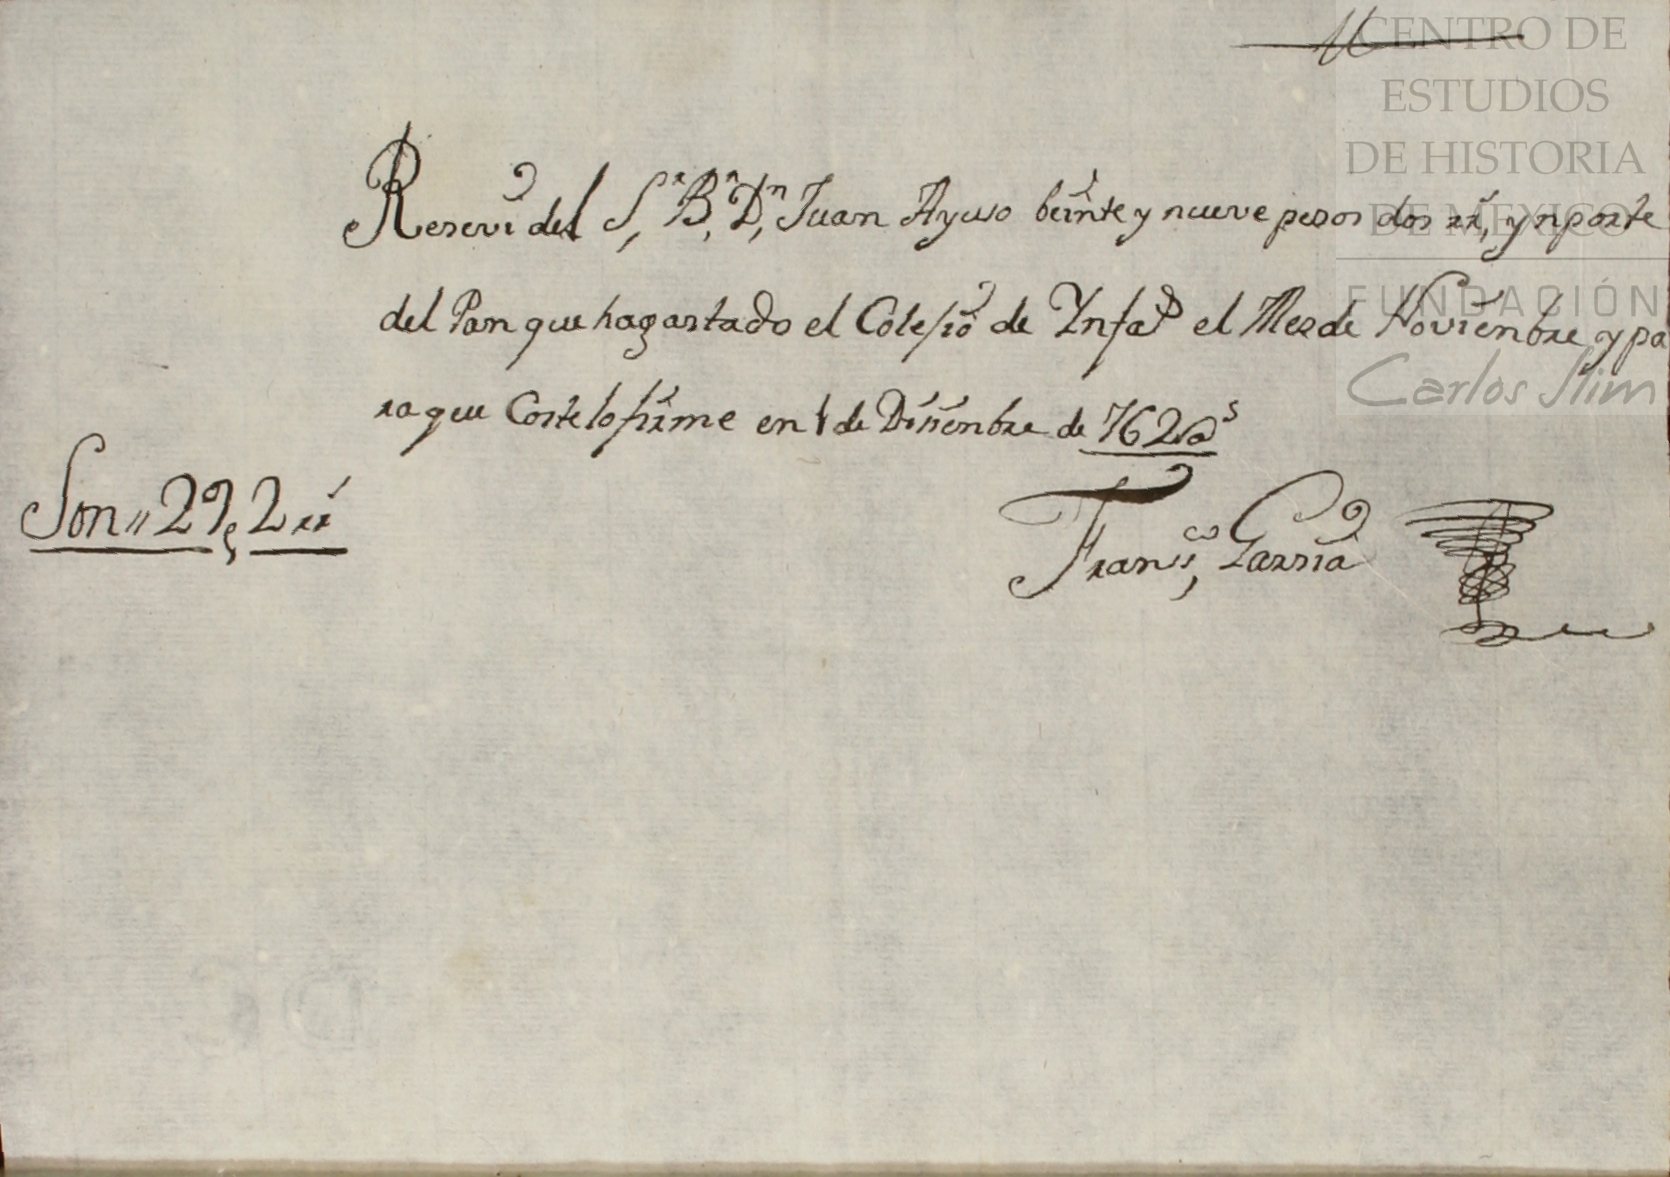 CENTRO DE
ESTUDIOS
DE HISTORIA
DE MÉXICO
FUNDACIÓN
Carlos Slim
Reseví del S.r B.r D.n Juan Ayuso beinte y nueve pesos dos rr.s, ynporte
del Pan que hagastado el Colesio de Ynfa.s el Mes de Novienbre y pa
ra que Coste lo firme en 1 de Disienbre de 762 a.s
Son,, 29, 2 rr.s
Fran.co Garsia